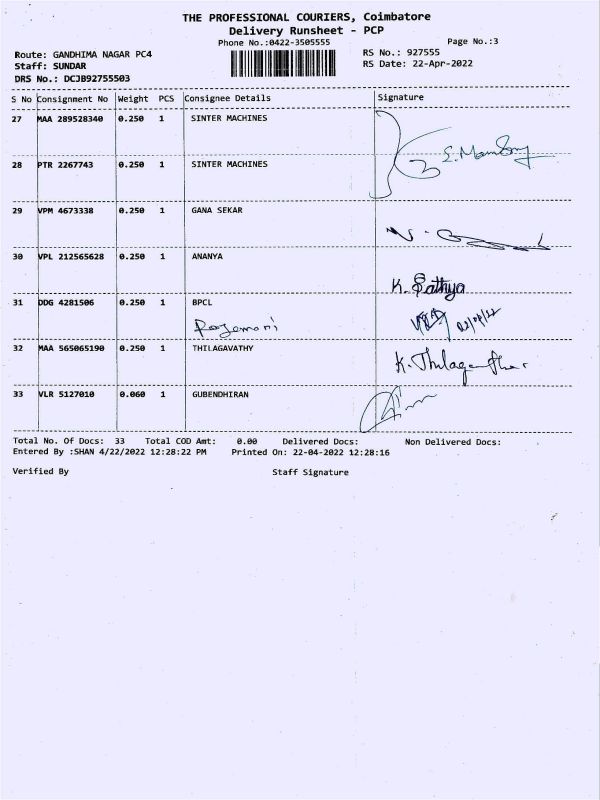 THE PROFESSIONAL COURIERS, Coimbatore
Delivery Runsheet - PCP
Phone No.:0422-3505555 Page No.:3
Route: GANDHIMA NAGAR PC4 RS No.: 927555
Staff: SUNDAR RS Date: 22-Apr-2022
DRS No.: DCJB92755503
S No Consignment No Weight PCS Consignee Details Signature
27 MAA 289528340 0.250 1 SINTER MACHINES
28 PTR 2267743 0.250 1 SINTER MACHINES
29 VPM 4673338 0.250 1 GANA SEKAR
30 VPL 212565628 0.250 1 ANANYA
K. Sathya
31 DDG 4281506 0.250 1 BPCL
32 MAA 565065190 0.250 1 THILAGAVATHY
33 VLR 5127010 0.060 1 GUBENDHIRAN
Total No. Of Docs: 33 Total COD Amt: 0.00 Delivered Docs: Non Delivered Docs:
Entered By :SHAN 4/22/2022 12:28:22 PM Printed On: 22-04-2022 12:28:16
Verified By Staff Signature